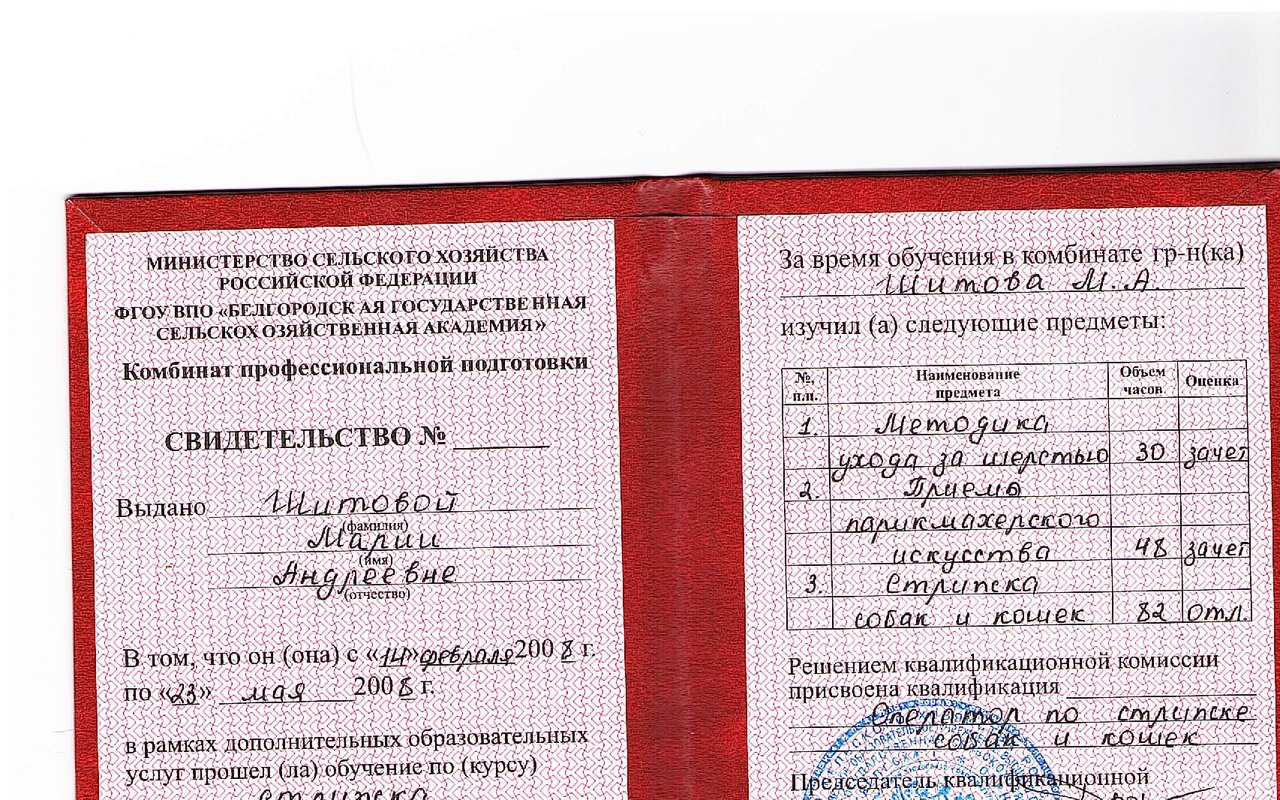 МИНИСТЕРСТВО СЕЛЬСКОГО ХОЗЯЙСТВА
РОССИЙСКОЙ ФЕДЕРАЦИИ
ФГОУ ВПО «БЕЛГОРОДСКАЯ ГОСУДАРСТВЕННАЯ
СЕЛЬСКОХОЗЯЙСТВЕННАЯ АКАДЕМИЯ»
Комбинат профессиональной подготовки
СВИДЕТЕЛЬСТВО №
Выдано Шитовой
(фамилия)
Марии
(имя)
Андреевне
(отчество)
В том, что он (она) с «14» февраля 2008 г.
по «23» мая 2008 г.
в рамках дополнительных образовательных
услуг прошел (ла) обучение по (курсу)
стрипска
За время обучения в комбинате гр-н(ка)
Шитова М.А.
изучил (а) следующие предметы:
№, п.п. Наименование предмета Объем часов Оценка
1. Методика
ухода за шерстью 30 зачет
2. Приемы
парикмахерского
искусства 48 зачет
3. Стрипска
собак и кошек 82 отл.
Решением квалификационной комиссии
присвоена квалификация
Оператор по стрипске
собак и кошек
Председатель квалификационной